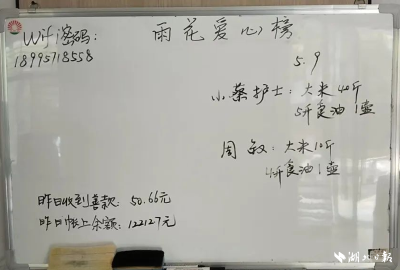 Wifi密码:
18995718558
雨花爱心榜
5.9
小蔡护士: 大米40斤
5升食油1壶
周敏: 大米10斤
4升食油1壶
昨日收到善款: 50.66元
昨日帐上余额: 122127元
湖北日报